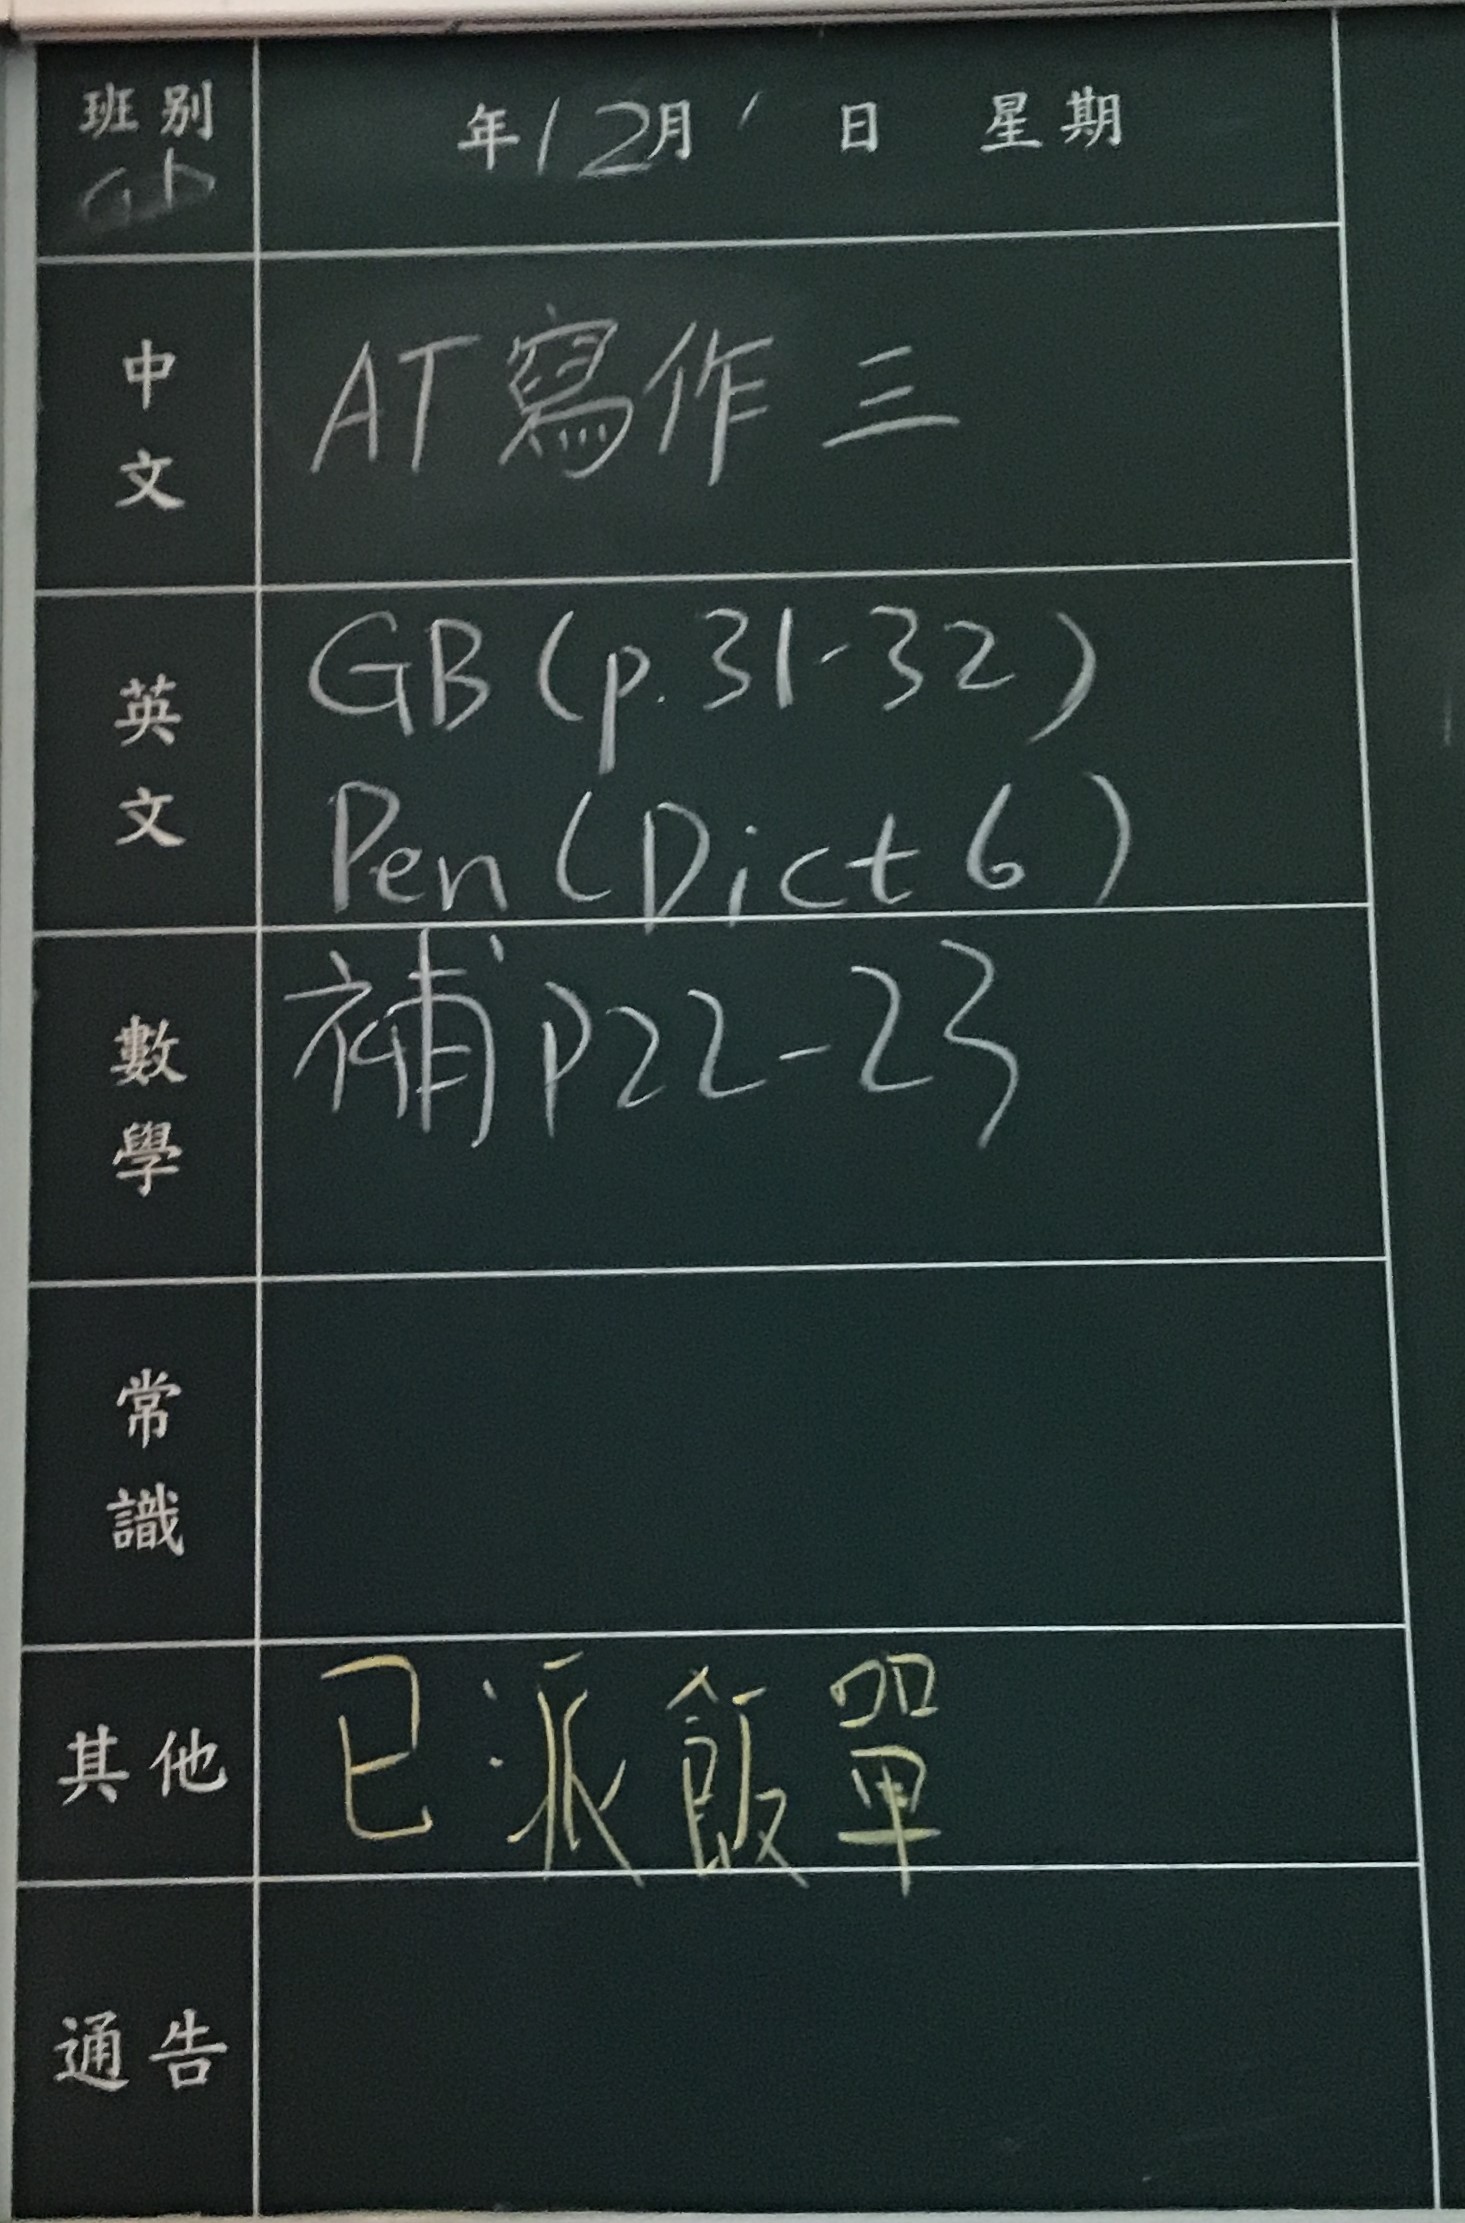 班別 年12月1日 星期
6D
中文 AT 寫作三
英文 GB (p.31-32)
Pen (Dict 6)
數學 補 P22-23
常識
其他 已派飯單
通告